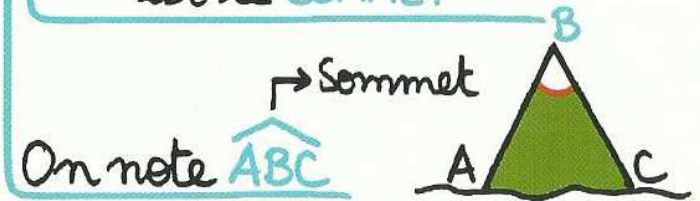 B
Sommet
On note ABC
A
C